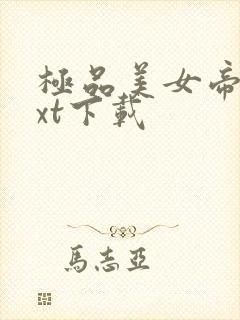 極品美女帝
xt下載
馬志亞